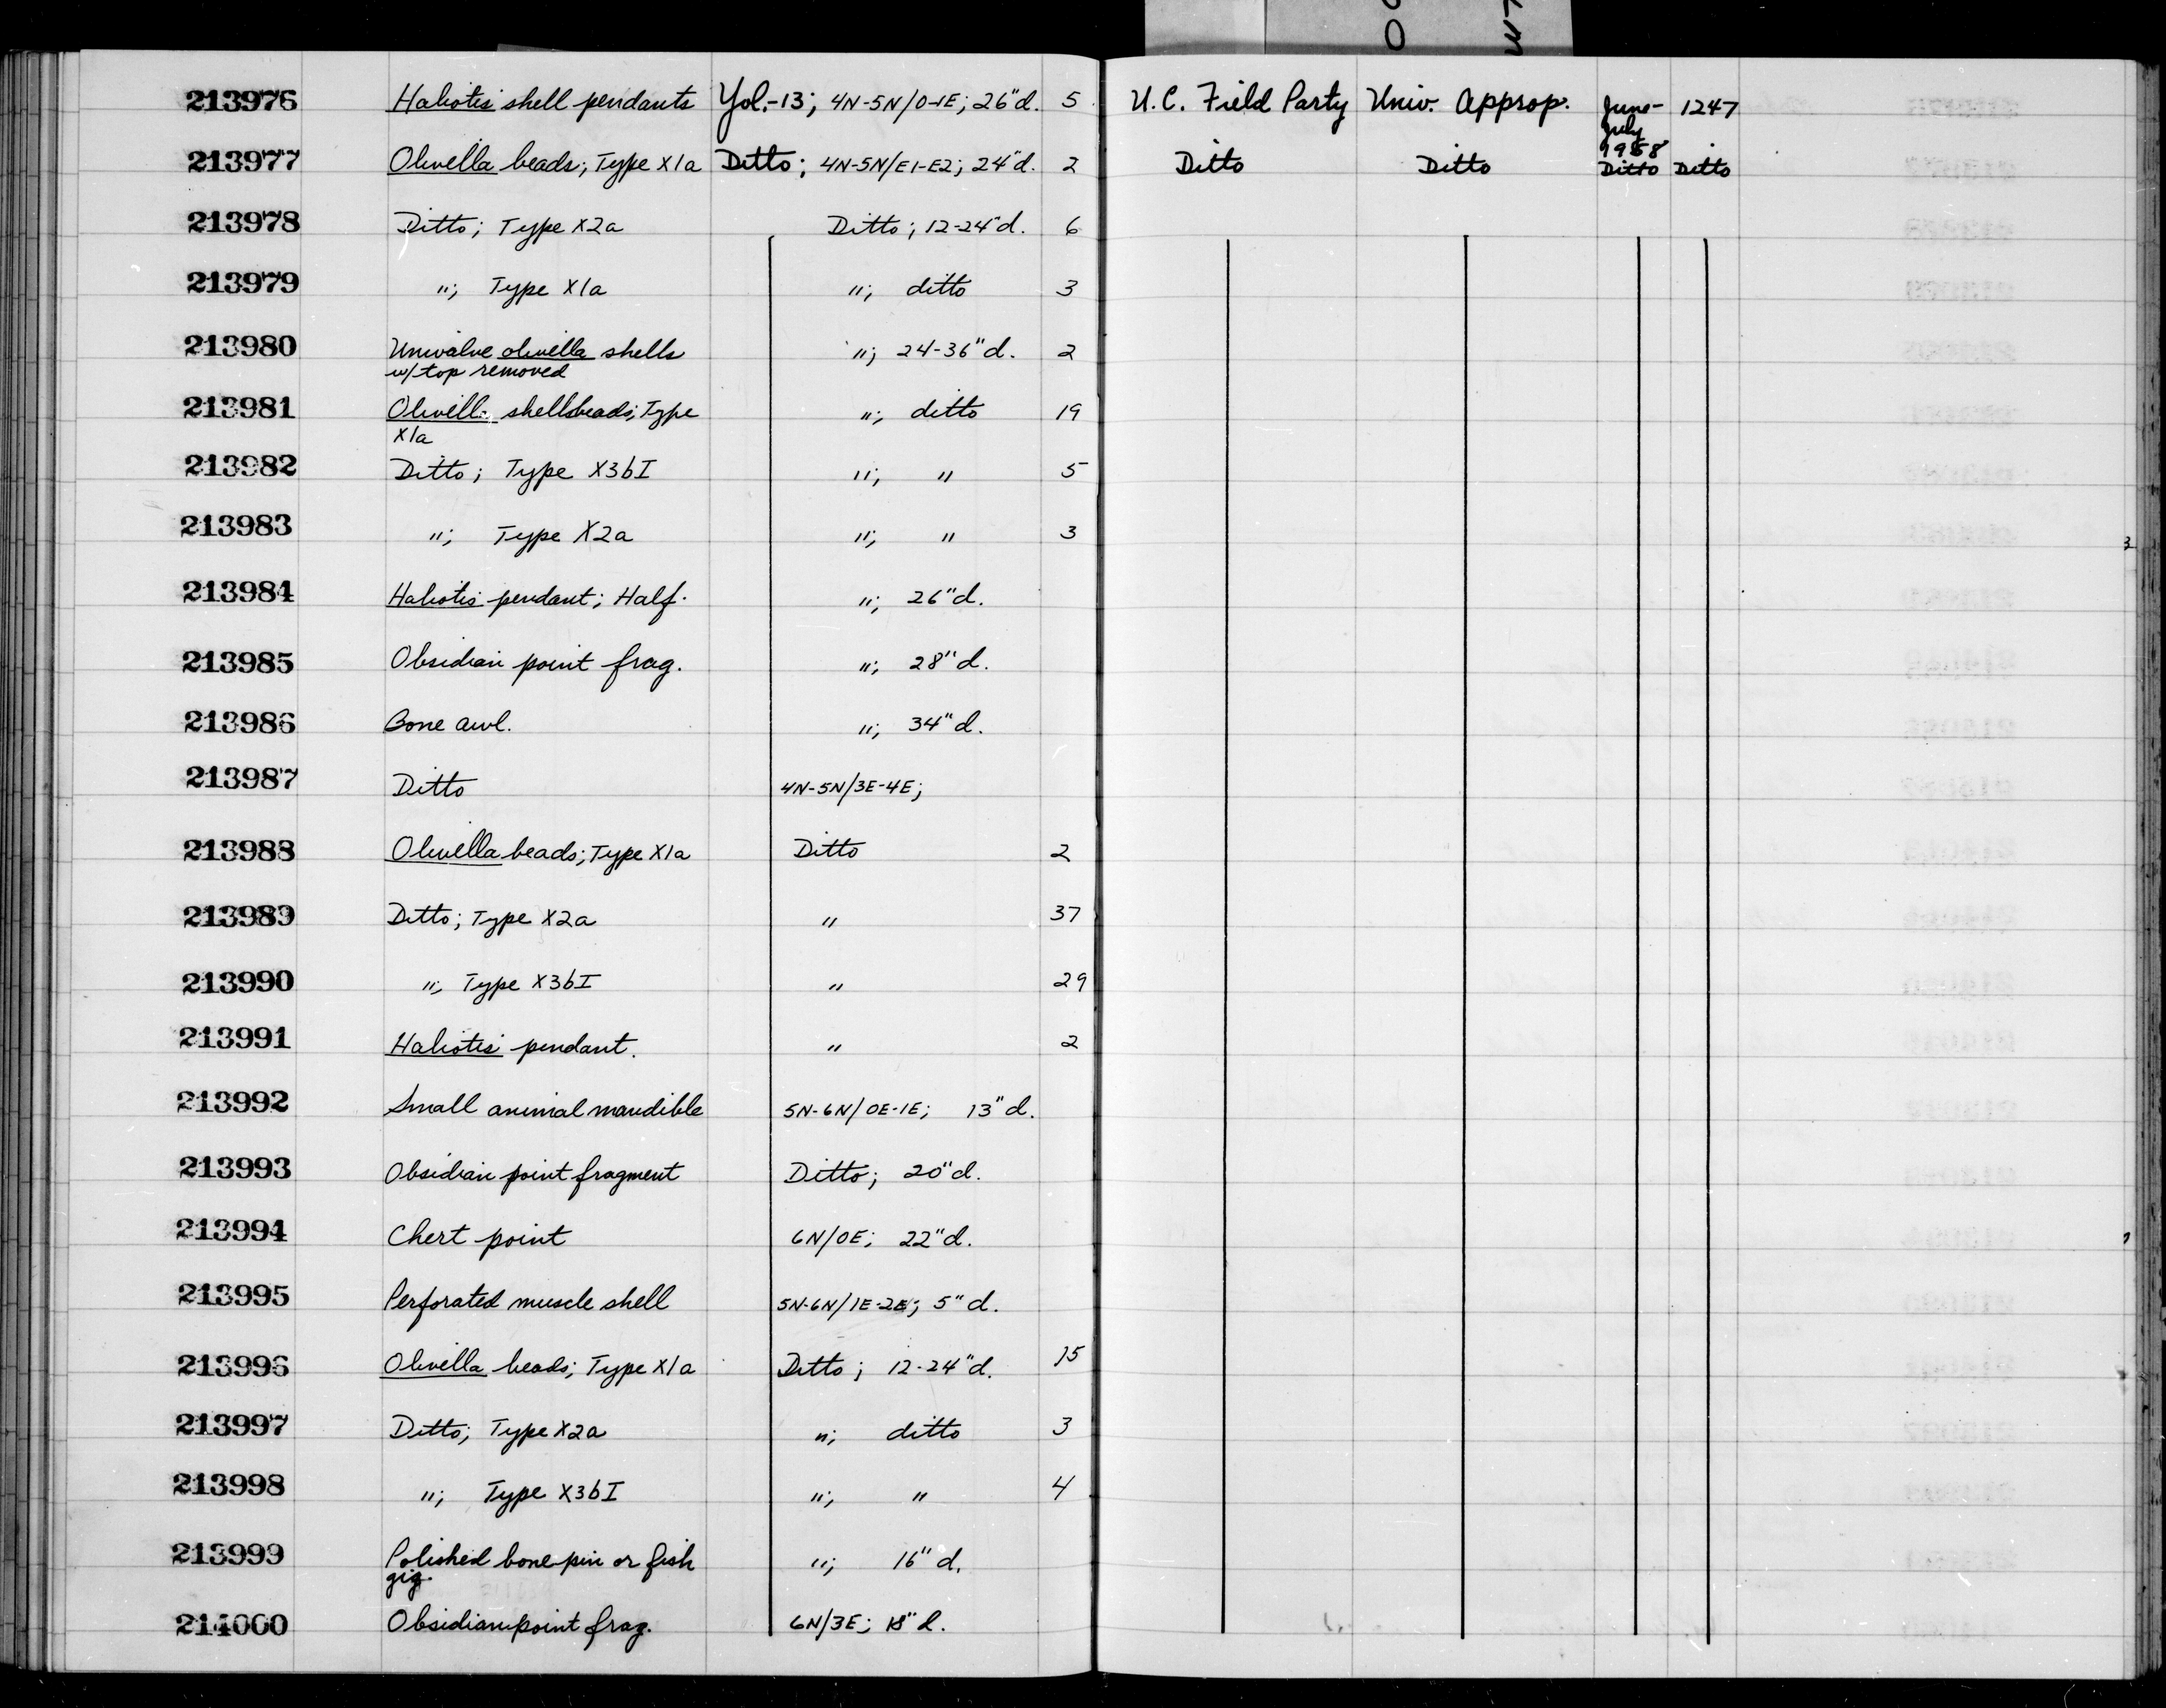 213976 Haliotis shell pendants Yol.-13; 4N-5N/0-1E; 26"d. 5 U.C. Field Party Univ. Approp. June-July 1958 1247
213977 Olivella beads; Type X1a Ditto; 4N-5N/E1-E2; 24"d. 2 Ditto Ditto Ditto Ditto
213978 Ditto; Type X2a Ditto; 12-24"d. 6
213979 "; Type X1a "; ditto 3
213980 Univalve olivella shells "; 24-36"d. 2
w/top removed
213981 Olivella shellsbeads; Type "; ditto 19
X1a
213982 Ditto; Type X3bI "; " 5
213983 "; Type X2a "; " 3
213984 Haliotis pendant; Half. "; 26"d.
213985 Obsidian point frag. "; 28"d.
213986 Bone awl. "; 34"d.
213987 Ditto 4N-5N/3E-4E;
213988 Olivella beads; Type X1a Ditto 2
213989 Ditto; Type X2a " 37
213990 "; Type X3bI " 29
213991 Haliotis pendant. " 2
213992 Small animal mandible 5N-6N/0E-1E; 13"d.
213993 Obsidian point fragment Ditto; 20"d.
213994 Chert point 6N/0E; 22"d.
213995 Perforated muscle shell 5N-6N/1E-2E; 5"d.
213996 Olivella beads; Type X1a Ditto; 12-24"d. 15
213997 Ditto; Type X2a "; ditto 3
213998 "; Type X3bI "; " 4
213999 Polished bone pin or fish "; 16"d.
gig.
214000 Obsidian point frag. 6N/3E; 18"d.